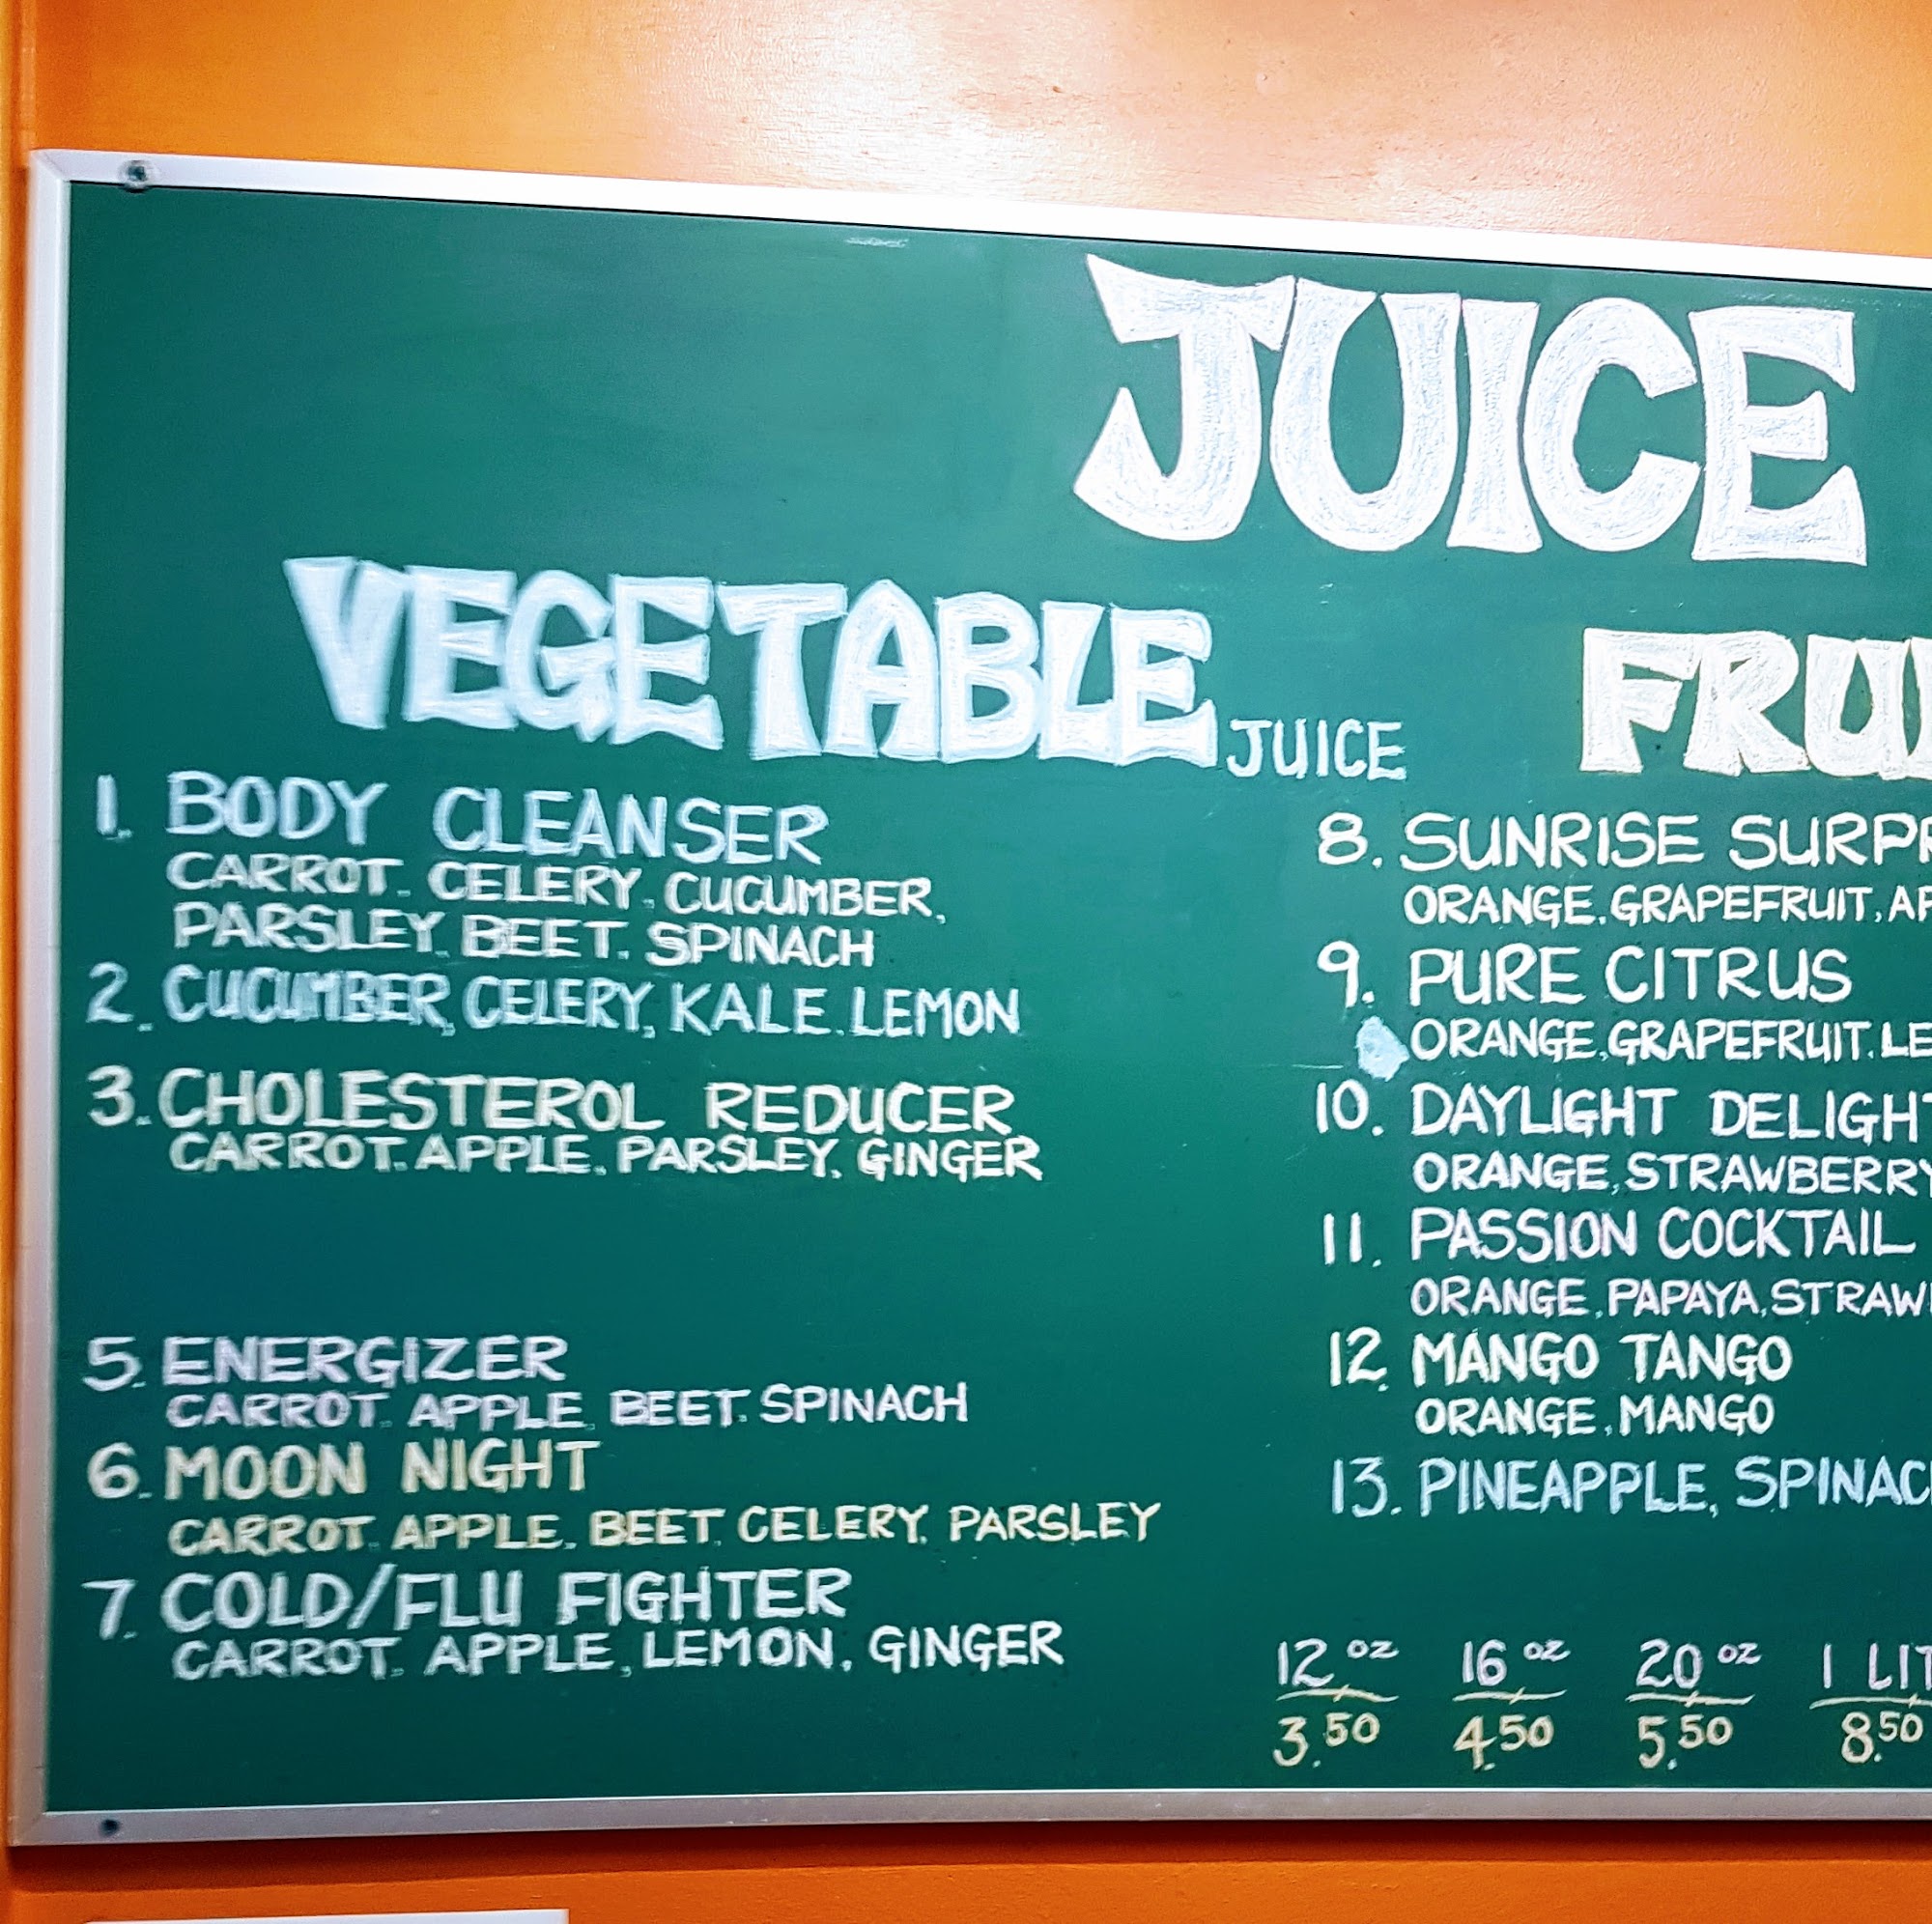 JUICE
VEGETABLE JUICE
1. BODY CLEANSER
CARROT, CELERY, CUCUMBER,
PARSLEY, BEET, SPINACH
2. CUCUMBER, CELERY, KALE, LEMON
3. CHOLESTEROL REDUCER
CARROT, APPLE, PARSLEY, GINGER
5. ENERGIZER
CARROT, APPLE, BEET, SPINACH
6. MOON NIGHT
CARROT, APPLE, BEET, CELERY, PARSLEY
7. COLD/FLU FIGHTER
CARROT, APPLE, LEMON, GINGER
FRUI
8. SUNRISE SURPR
ORANGE, GRAPEFRUIT, AP
9. PURE CITRUS
ORANGE, GRAPEFRUIT, LE
10. DAYLIGHT DELIGHT
ORANGE, STRAWBERRY
11. PASSION COCKTAIL
ORANGE, PAPAYA, STRAW
12. MANGO TANGO
ORANGE, MANGO
13. PINEAPPLE, SPINAC
12 oz 16 oz 20 oz 1 LIT
3.50 4.50 5.50 8.50